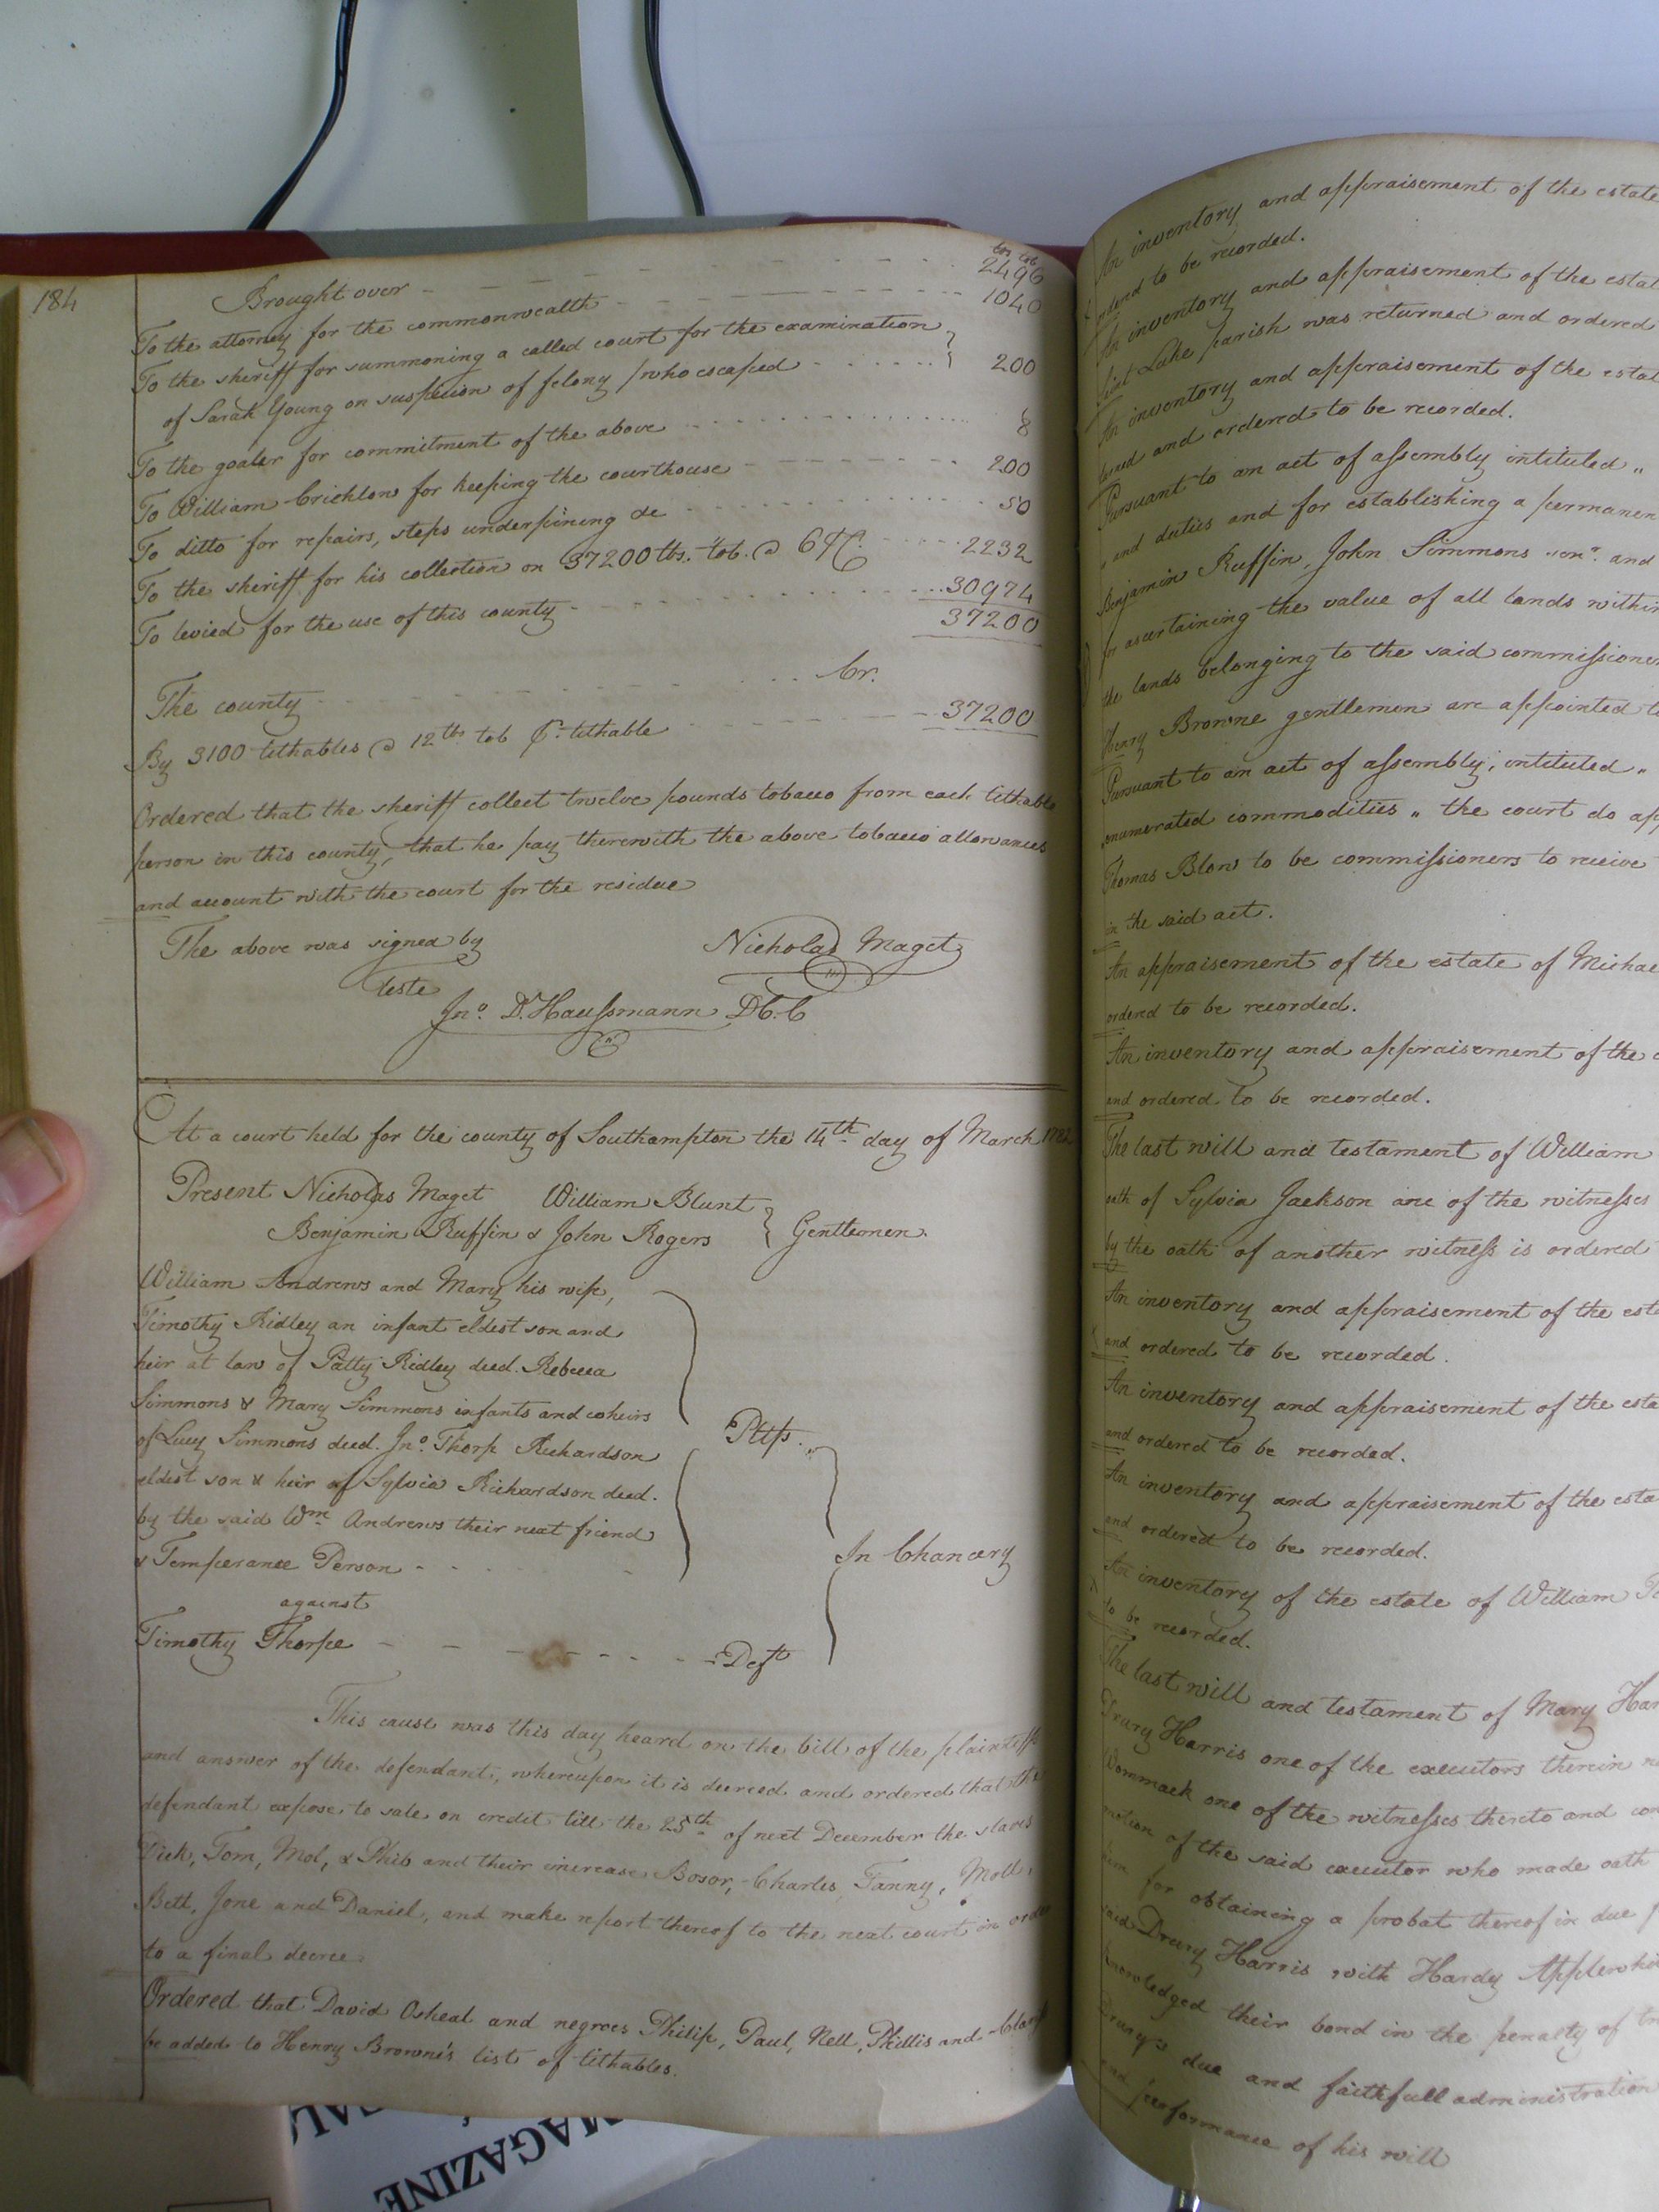 184
lbs tob
Brought over - - - 2496
To the attorney for the commonwealth - - - 1040
To the sheriff for summoning a called court for the examination
of Sarah Young on suspicion of felony /who escaped - - - 200
To the goaler for commitment of the above - - - 8
To William Crichlow for keeping the courthouse - - - 200
To ditto for repairs, steps underpining &c - - - 50
To the sheriff for his collection on 37200 lbs. tob. @ 6 ⅌ C. - - - 2232
To levied for the use of this county - - - 30974
37200
The county - - - Cr.
By 3100 tithables @ 12 lbs tob ⅌ tithable - - - 37200
Ordered that the sheriff collect twelve pounds tobacco from each tithable
person in this county, that he pay therewith the above tobacco allowances
and account with the court for the residue
The above was signed by Nicholas Maget
teste
Jno. D. Haussmann D C. C
At a court held for the county of Southampton the 14th day of March
Present Nicholas Maget William Blunt
Benjamin Ruffin & John Rogers } Gentlemen.
William Andrews and Mary his wife,
Timothy Ridley an infant eldest son and
heir at law of Patty Ridley decd. Rebecca
Simmons & Mary Simmons infants and coheirs
of Lucy Simmons decd. Jno. Thorp Richardson
Pltfs.
eldest son & heir of Sylvia Richardson decd.
by the said Wm Andrews their next friend
& Temperance Person - - -
In Chancery
against
Timothy Thorpe - - - Deft
This cause was this day heard on the bill of the plaintiffs
and answer of the defendant, whereupon it is decreed and ordered that the
defendant expose to sale on credit till the 25th of next December the slaves
Dick, Tom, Mol, & Phib and their increase Bosor, Charles, Fanny, Moll,
Bett, Jone and Daniel, and make report thereof to the next court in order
to a final decree.
Ordered that David Osheal and negroes Philip, Paul, Nell, Phillis and
be added to Henry Browne's list of tithables.
An inventory and appraisement of the estate
to be recorded.
An inventory and appraisement of the
Saint Luke parish was returned and ordered
An inventory and appraisement of the
and ordered to be recorded.
Pursuant to an act of assembly intituled "
" and duties and for establishing a
Benjamin Ruffin, John Simmons senr. and
for ascertaining the value of all lands
the lands belonging to the said
Henry Browne gentlemen are appointed
Pursuant to an act of assembly, intituled "
enumerated commodities " the court do
Thomas Blow to be commissioners to receive
in the said act.
An appraisement of the estate of
ordered to be recorded.
An inventory and appraisement of the
and ordered to be recorded.
The last will and testament of William
oath of Sylvia Jackson one of the witnesses
by the oath of another witness is ordered
An inventory and appraisement of the
and ordered to be recorded.
An inventory and appraisement of the
and ordered to be recorded.
An inventory and appraisement of the
and ordered to be recorded.
An inventory of the estate of William
to be recorded.
The last will and testament of Mary
Drury Harris one of the executors therein
Wommack one of the witnesses thereto and
motion of the said executor who made oath
for obtaining a probat thereof in due
said Drury Harris with Hardy
their bond in the penalty of
Drury's due and faithfull administration
and performance of his will
MAGAZINE